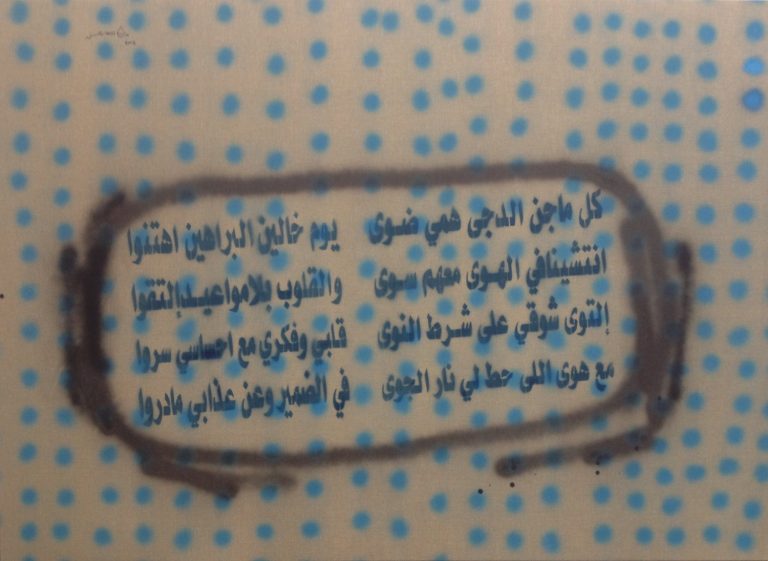 كل ماجن الدجى همي ضوى يوم خالين البراهين اهتنوا
انتشينافي الهوى معهم سوى والقلوب بلامواعيد إلتقوا
إلتوى شوقي على شرط النوى قلبي وفكري مع احساسي سروا
مع هوى اللى حط لي نار الجوى في الضمير وعن عذابي مادروا